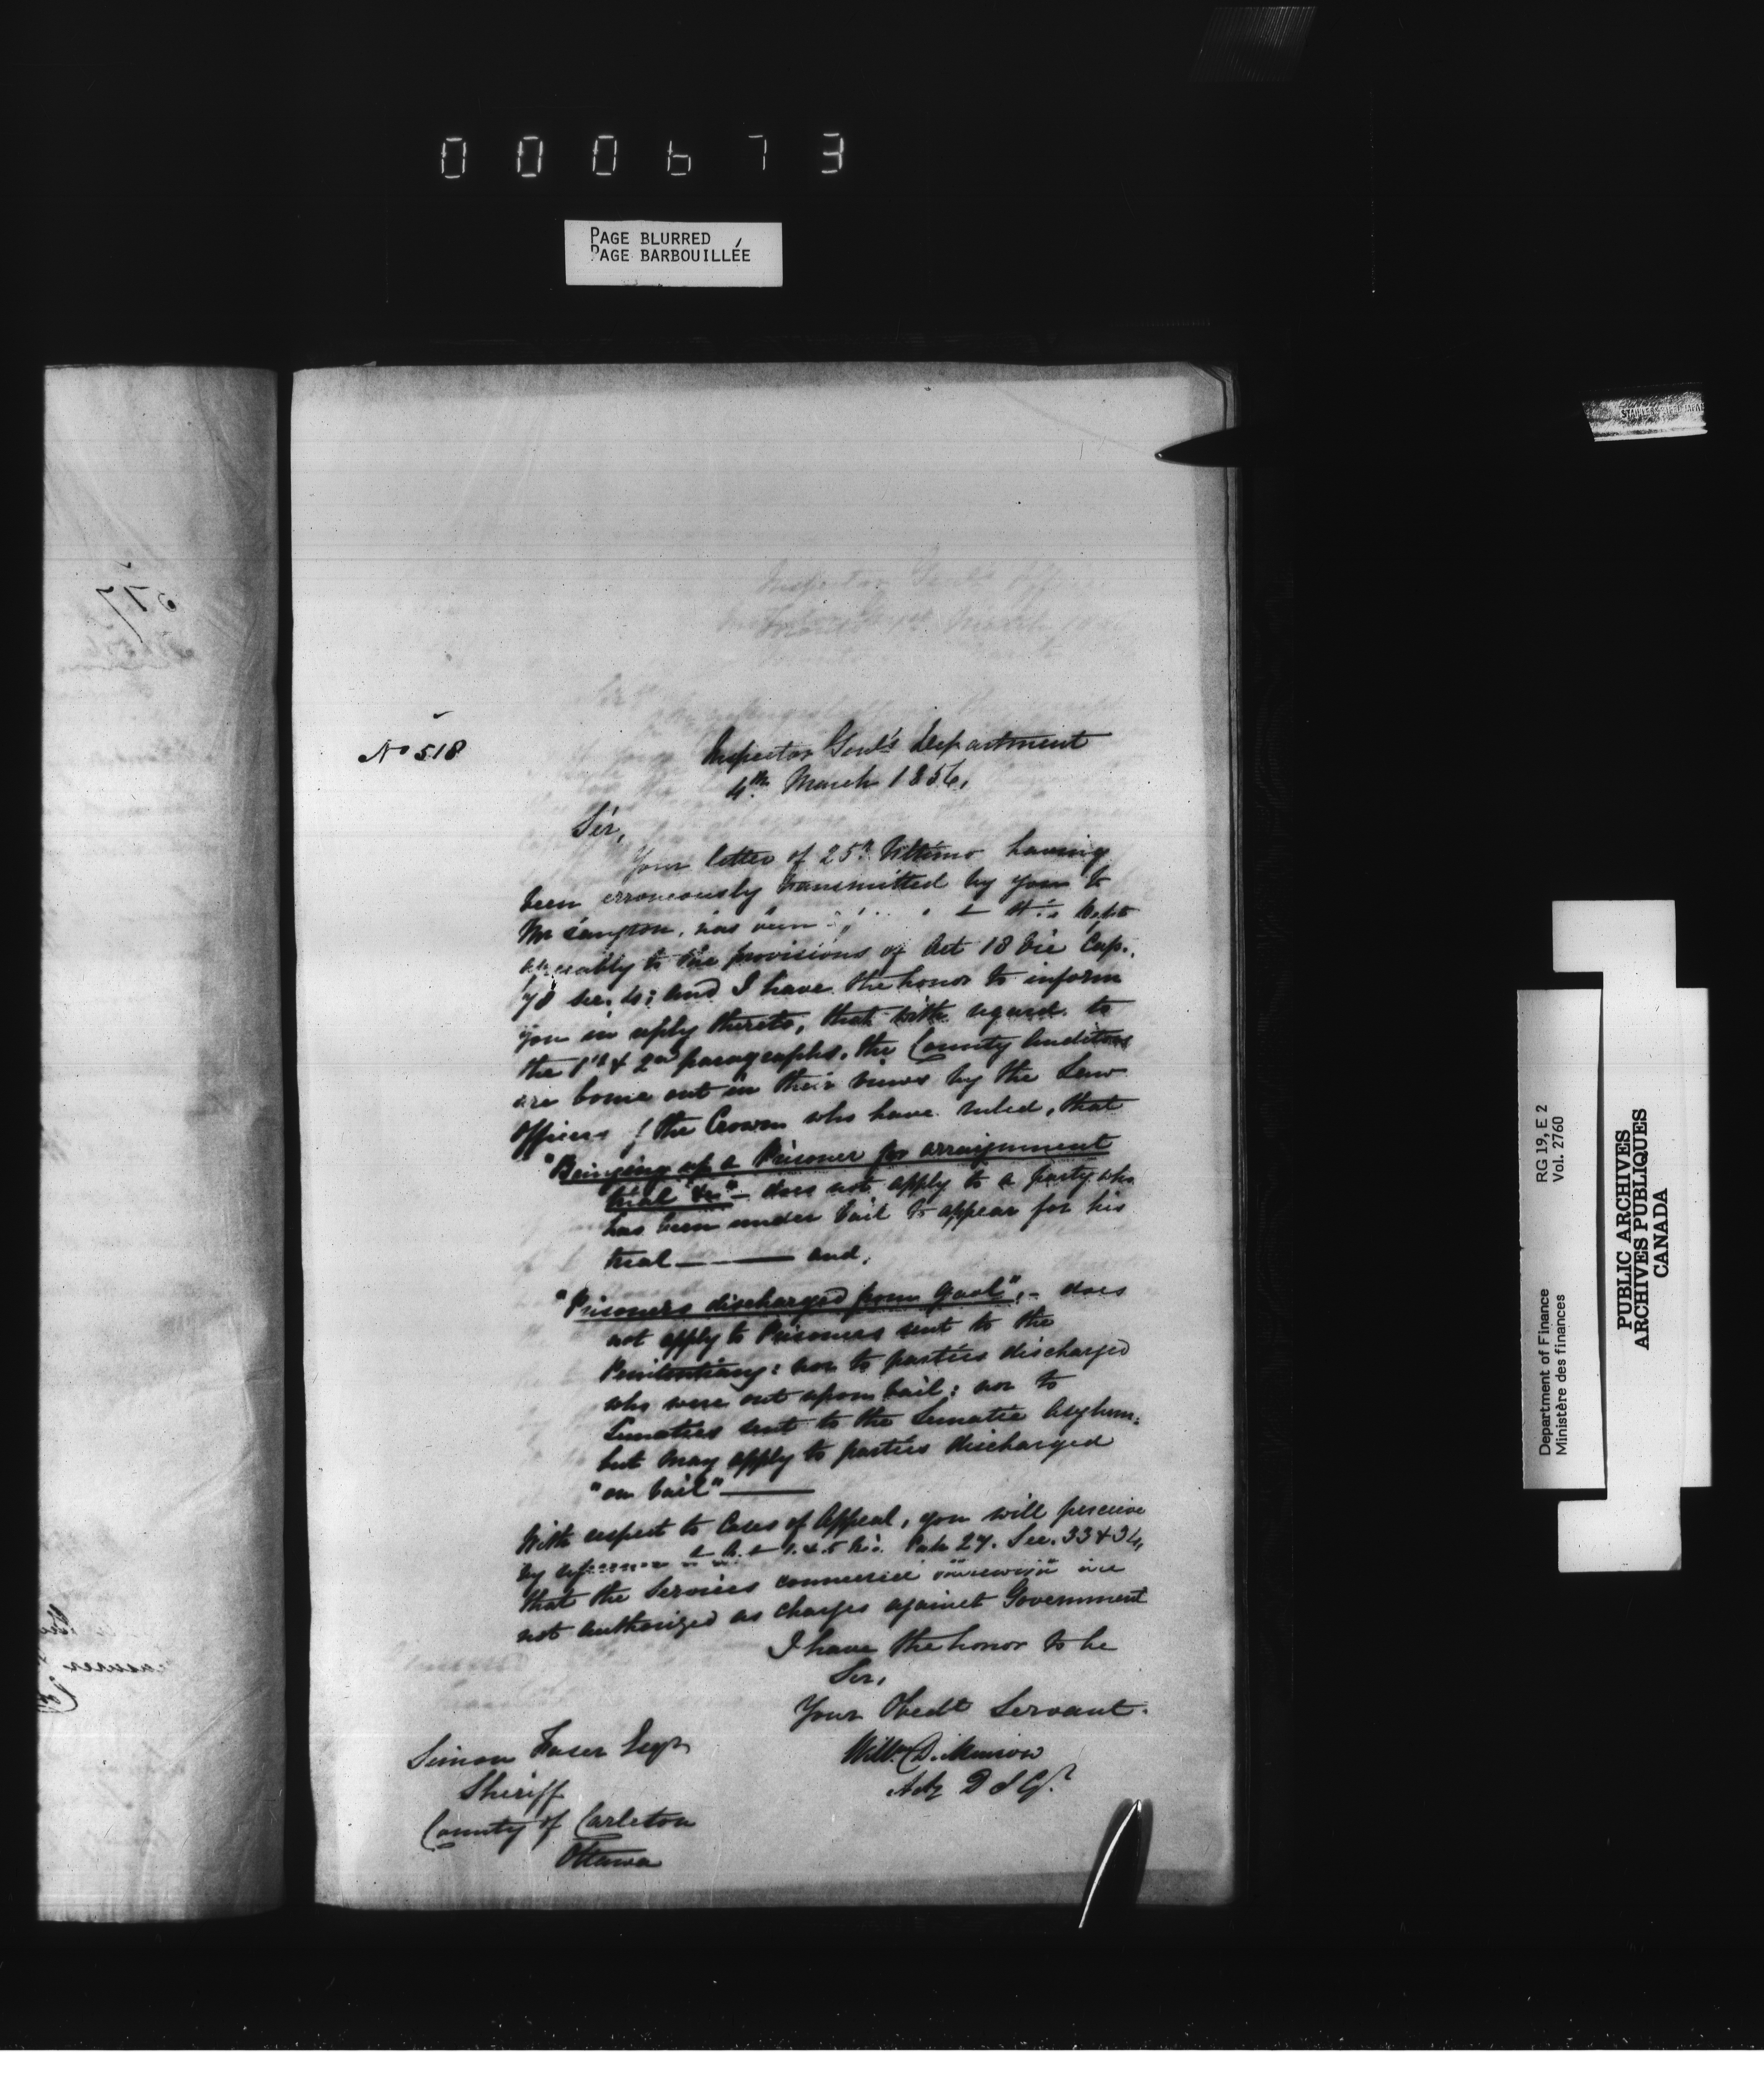 000673
PAGE BLURRED
PAGE BARBOUILLÉE
517
No 518
Inspector Genl's Department
4th March 1856,
Sir,
Your letter of 25th Ultimo having
been erroneously transmitted by you to
Mr Langton, has been to this Dept
agreeably to the provisions of Act 18 Vic Cap.
78 sec. 4; and I have the honor to inform
you in reply thereto, that with regard to
the 1st & 2nd paragraphs, the County Auditors
are borne out in their views by the Law
Officers of the Crown who have ruled, that
"Bringing up a Prisoner for arraignment
trial &c" – does not apply to a party who
has been under bail to appear for his
trial — and,
"Prisoners discharged from Gaol", – does
not apply to Prisoners sent to the
Penitentiary: nor to parties discharged
who were out upon bail: nor to
Lunatics sent to the Lunatic Asylum:
but may apply to parties discharged
"on bail" —
With respect to Cases of Appeal, you will perceive
by reference to Act 4 & 5 Vic. Cap 27. Sec. 33 & 34,
that the Services connected are
not authorized as charges against Government
I have the honor to be
Sir,
Your Obedt Servant.
Willm Dickinson
Actg D I Gl.
Simon Fraser Esqr
Sheriff
County of Carleton
Ottawa
Department of Finance RG 19, E 2
Ministère des finances Vol. 2760
PUBLIC ARCHIVES
ARCHIVES PUBLIQUES
CANADA